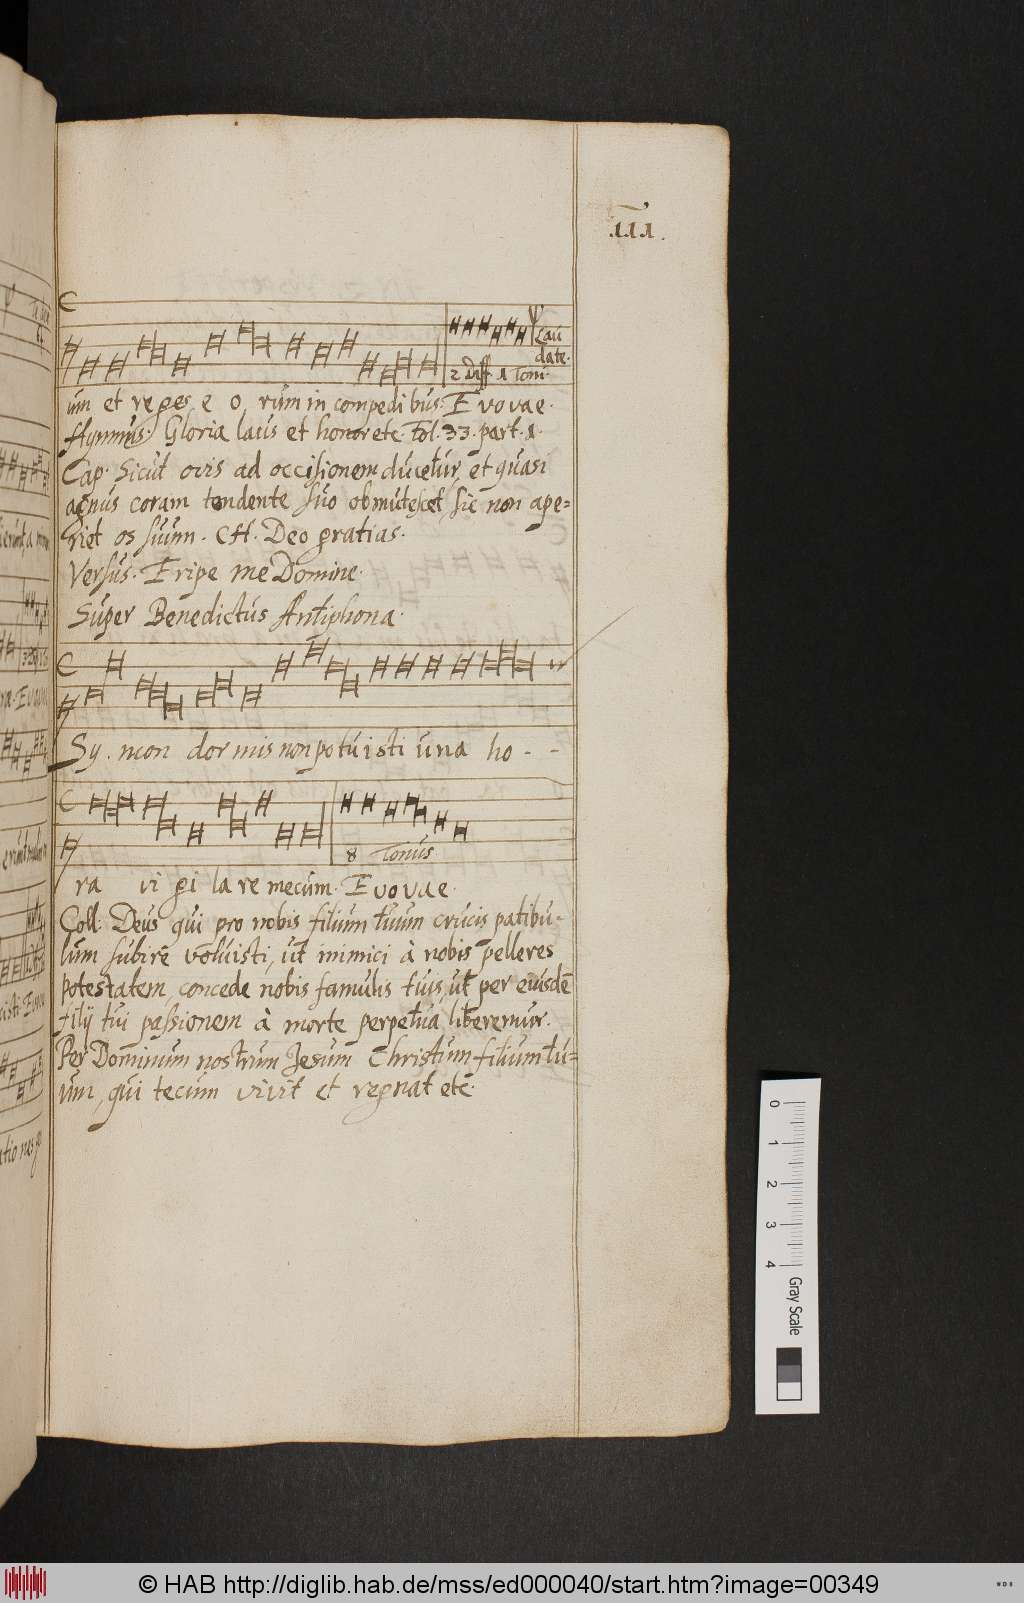 111.
Lau
date.
2 diff. 1 Toni.
um et reges e o rum in compedibus: Evovae.
Hymnus: Gloria laus et honor etc. Fol. 33. part. 1.
Cap. Sicut ovis ad occisionem ducetur, et quasi
agnus coram tondente suo obmutescet, sic non ape-
riet os suum. CH. Deo gratias.
Versus. Eripe me Domine.
Super Benedictus Antiphona.
Sy. meon dormis non potuisti una ho - -
8 Tonus.
ra vi gi la re mecum. Evovae.
Coll: Deus qui pro nobis filium tuum crucis patibu-
lum subire voluisti, ut inimici à nobis pelleres
potestatem, concede nobis famulis tuis, ut per eiusdē
filij tui passionem à morte perpetua liberemur.
Per Dominum nostrum Jesum Christum filium tu-
um, qui tecum vivit et regnat etc.
0 1 2 3 4 Gray Scale
© HAB http://diglib.hab.de/mss/ed000040/start.htm?image=00349